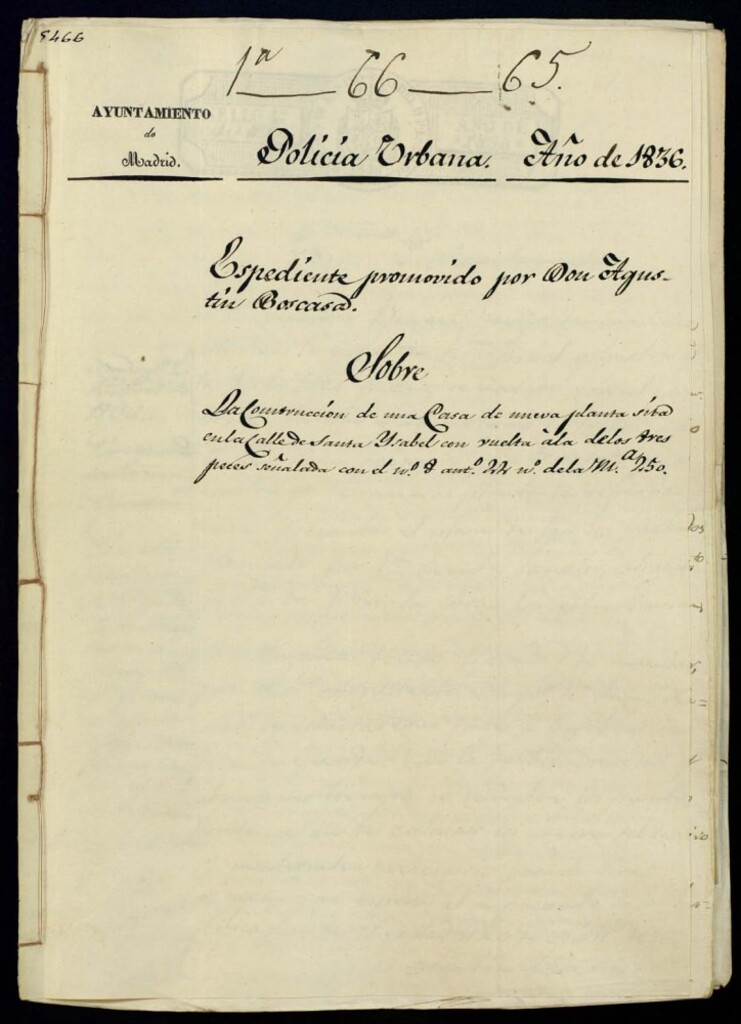 5466
1ª — 66 — 65.
AYUNTAMIENTO
de
Madrid.
Policía Urbana. Año de 1836.
Espediente promovido por Don Agus-
tin Boscasa.
Sobre
La Construccion de una Casa de nueva planta sita
en la Calle de Santa Ysabel con vuelta à la de los tres
peces señalada con el nº. 8 antº. 22 nº. de la M.ª 250.